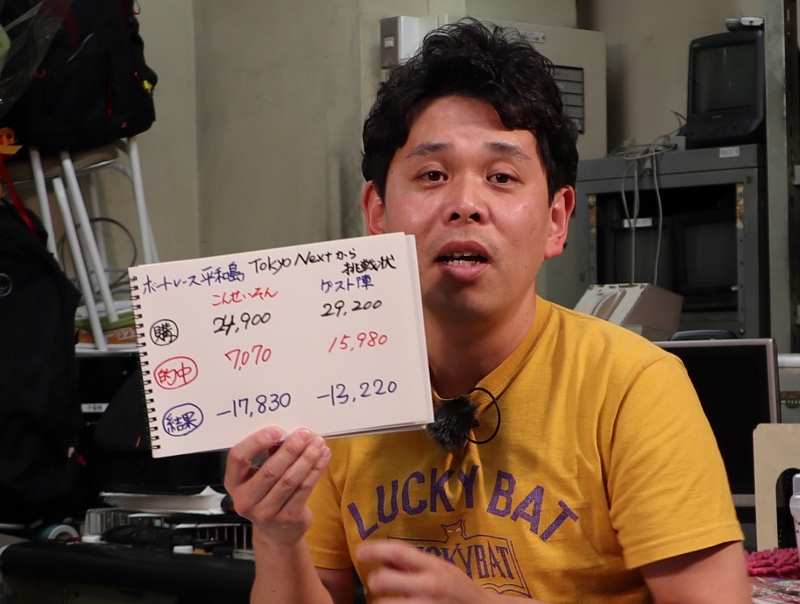 ボートレース平和島 Tokyo Nextから
挑戦状
こんせいそん ゲスト陣
購 24,900 29,200
的中 7,070 15,980
結果 -17,830 -13,220
LUCKY BAT
LUCKYBAT